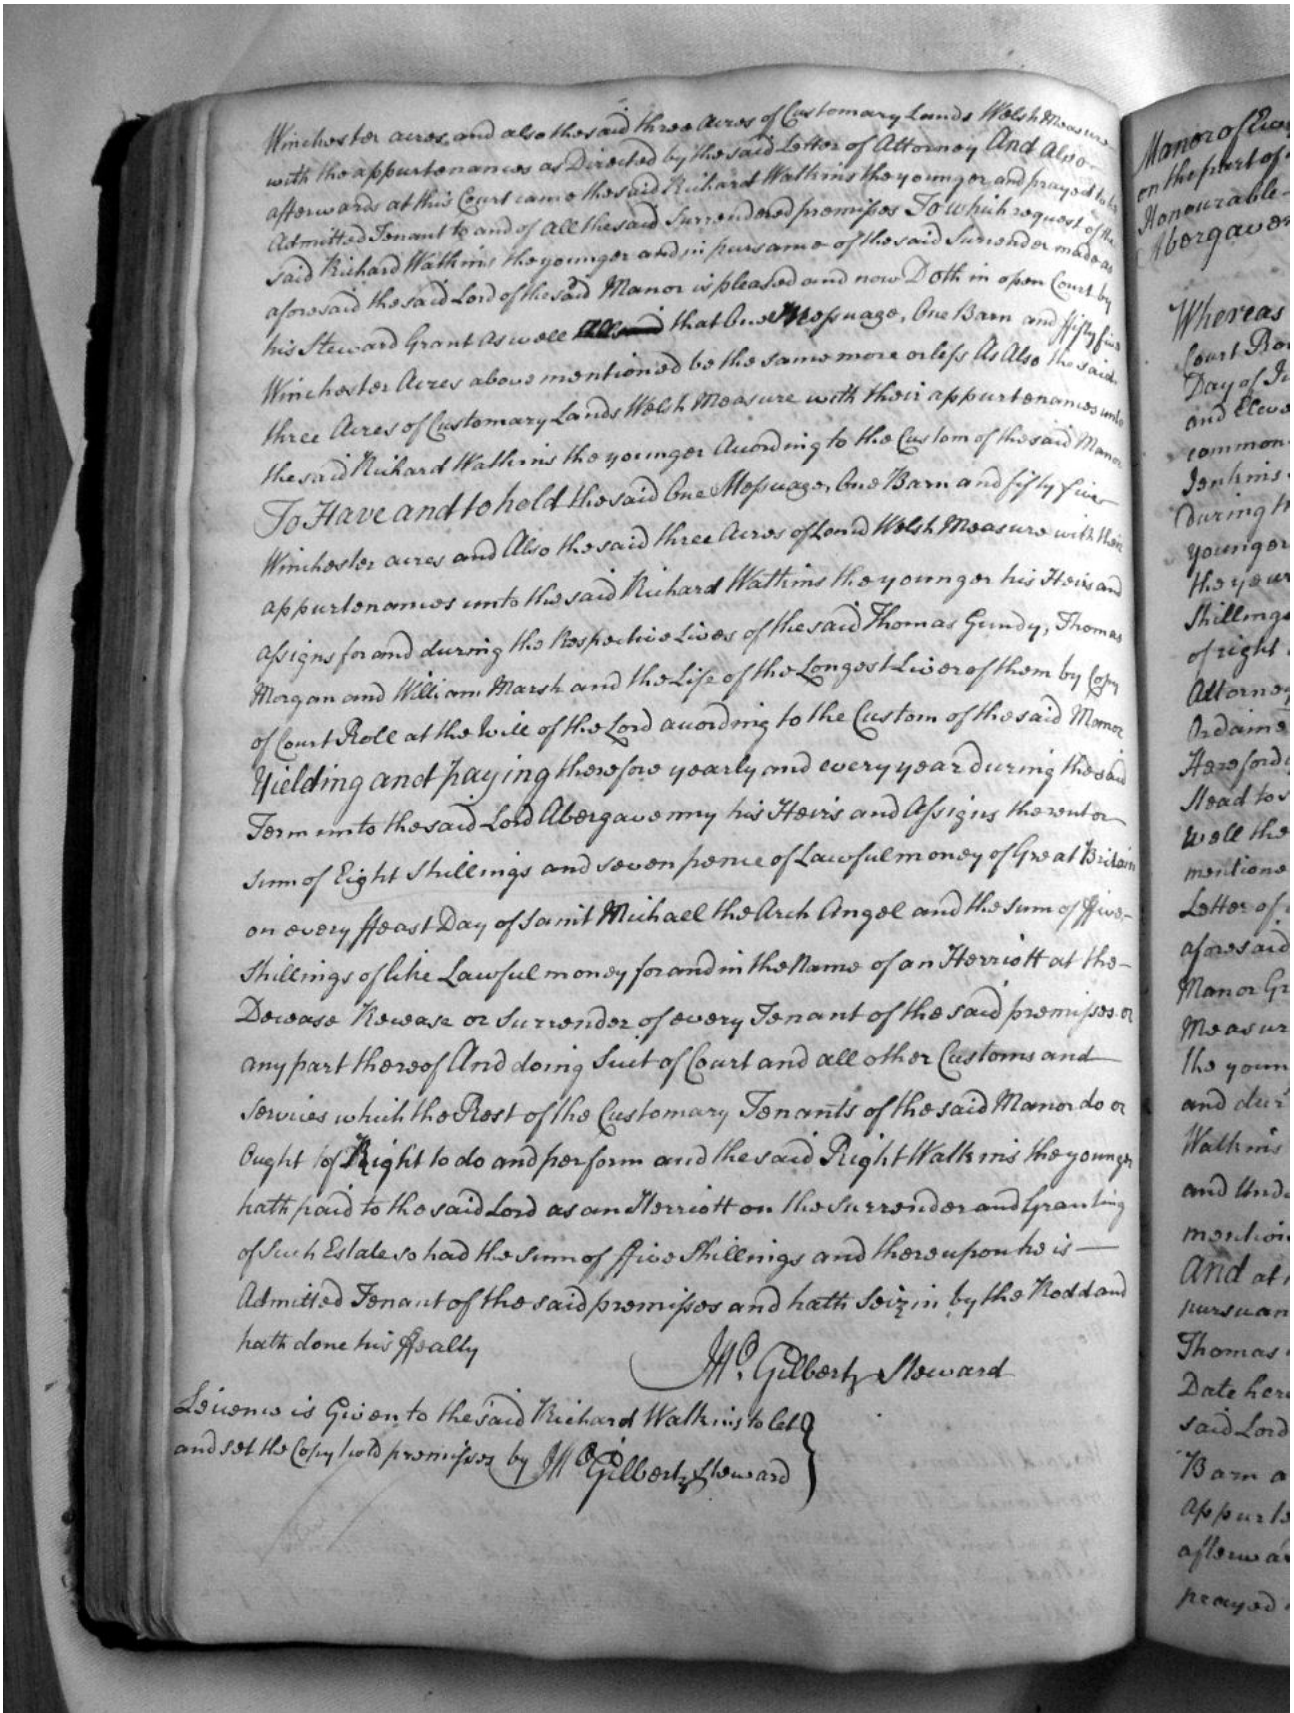 Winchester acres and also the said three Acres of Customary Lands Welsh Measure
with the appurtenances as Directed by the said Letter of Attorney And Also
afterwards at this Court came the said Richard Watkins the younger and prayed to be
Admitted Tenant to and of all the said Surrendered premisses To which request of the
said Richard Watkins the younger and in pursuance of the said Surrender made as
aforesaid the said Lord of the said Manor is pleased and now Doth in open Court by
his Steward Grant As well that One Messuage, One Barn and ffifty five
Winchester Acres above mentioned be the same more or less As Also the said
three Acres of Customary Lands Welsh Measure with their appurtenances unto
the said Richard Watkins the younger According to the Custom of the said Manor
To Have and to hold the said One Messuage, One Barn and fifty five
Winchester acres and Also the said three Acres of Land Welsh Measure with their
appurtenances unto the said Richard Watkins the younger his Heirs and
assigns for and during the Respective Lives of the said Thomas Gundy, Thomas
Morgan and William Marsh and the Life of the Longest Liver of them by Copy
of Court Roll at the Will of the Lord according to the Custom of the said Manor
Yielding and paying therefore yearly and every year during the said
Term unto the said Lord Abergavenny his Heirs and Assigns the rent or
sum of Eight Shillings and seven pence of Lawful money of Great Britain
on every ffeast Day of Saint Michael the Arch Angel and the sum of ffive
Shillings of like Lawful money for and in the Name of an Herriott at the
Decease Rewase or Surrender of every Tenant of the said premisses or
any part thereof And doing Suit of Court and all other Customs and
Services which the Rest of the Customary Tenants of the said Manor do or
Ought of Right to do and perform and the said Right Watkins the younger
hath paid to the said Lord as an Herriott on the Surrender and Granting
of Such Estate so had the sum of ffive Shillings and thereupon he is
Admitted Tenant of the said premisses and hath Seizin by the Rodd and
hath done his ffealty
Gilbert Steward
Leicence is Given to the said Richard Watkins to let
and set the Copy hold premisses by Gilbert Steward
Manor of
on the part of
Honourable
Abergaven
Whereas
Court
Day of
and Eleve
common
Jenkins
During th
younger
the year
Shillings
of right
Attorney
Ordaine
Hereford
Stead to
Well the
mentione
Letter of
aforesaid
Manor Gr
Measur
the youn
and dur
Watkins
and Unde
mention
And at
pursuan
Thomas
Date here
said Lord
Barn a
appurte
afterwa
prayed